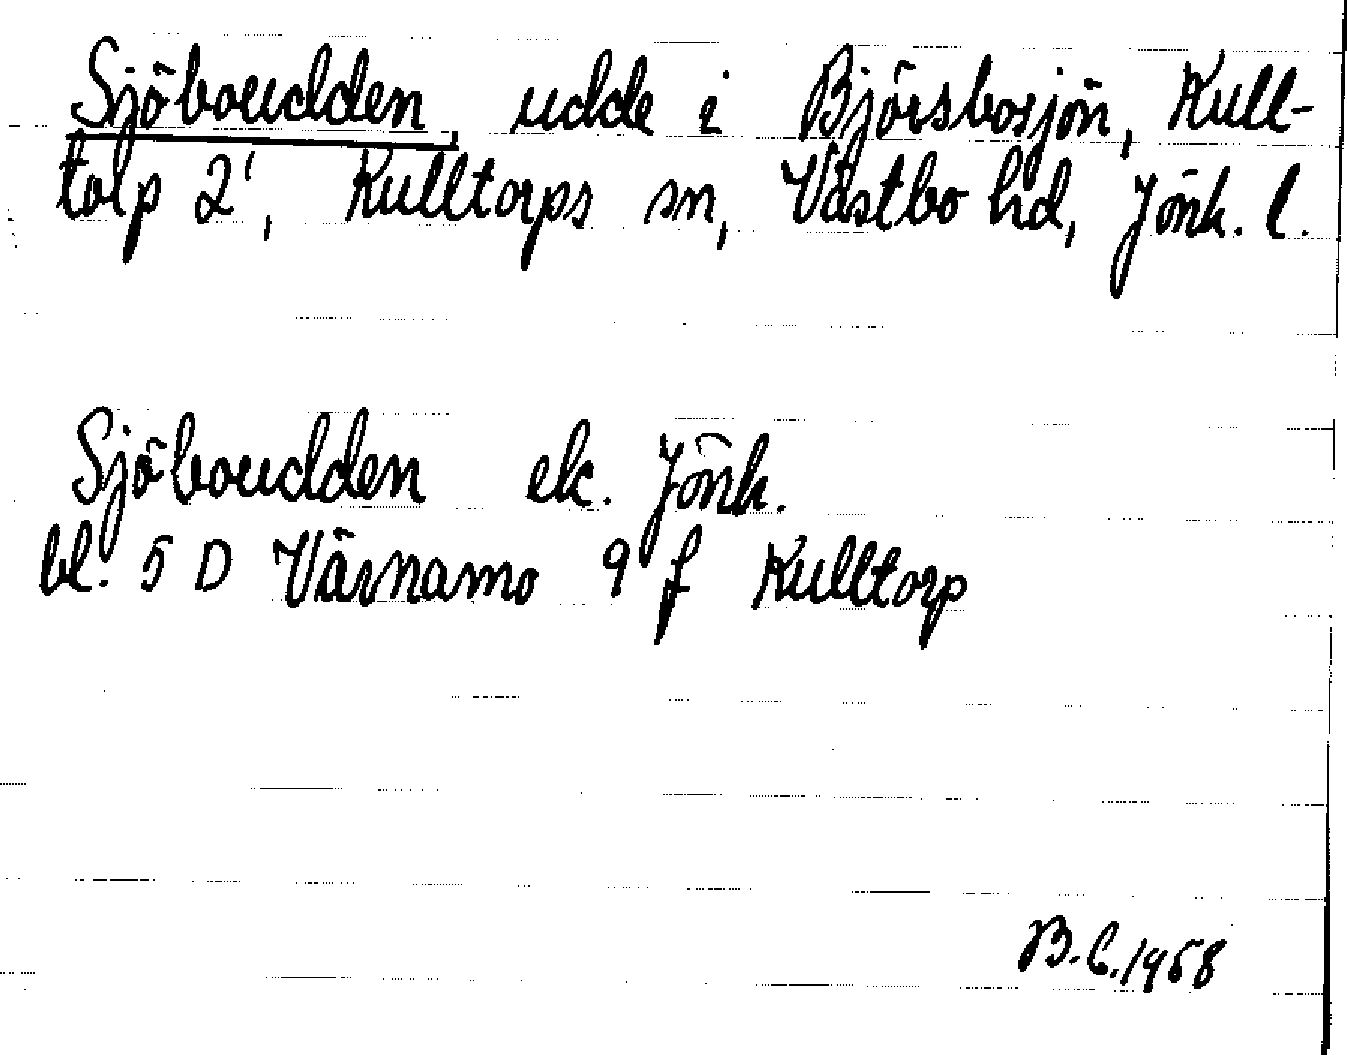 Sjöboudden, udde i Bjärsbosjön, Kull-
torp 2¹, Kulltorps sn, Västbo hd, Jönk. l.
Sjöboudden ek. Jönk.
bl. 5 D Värnamo 9 f Kulltorp
B.C. 1968